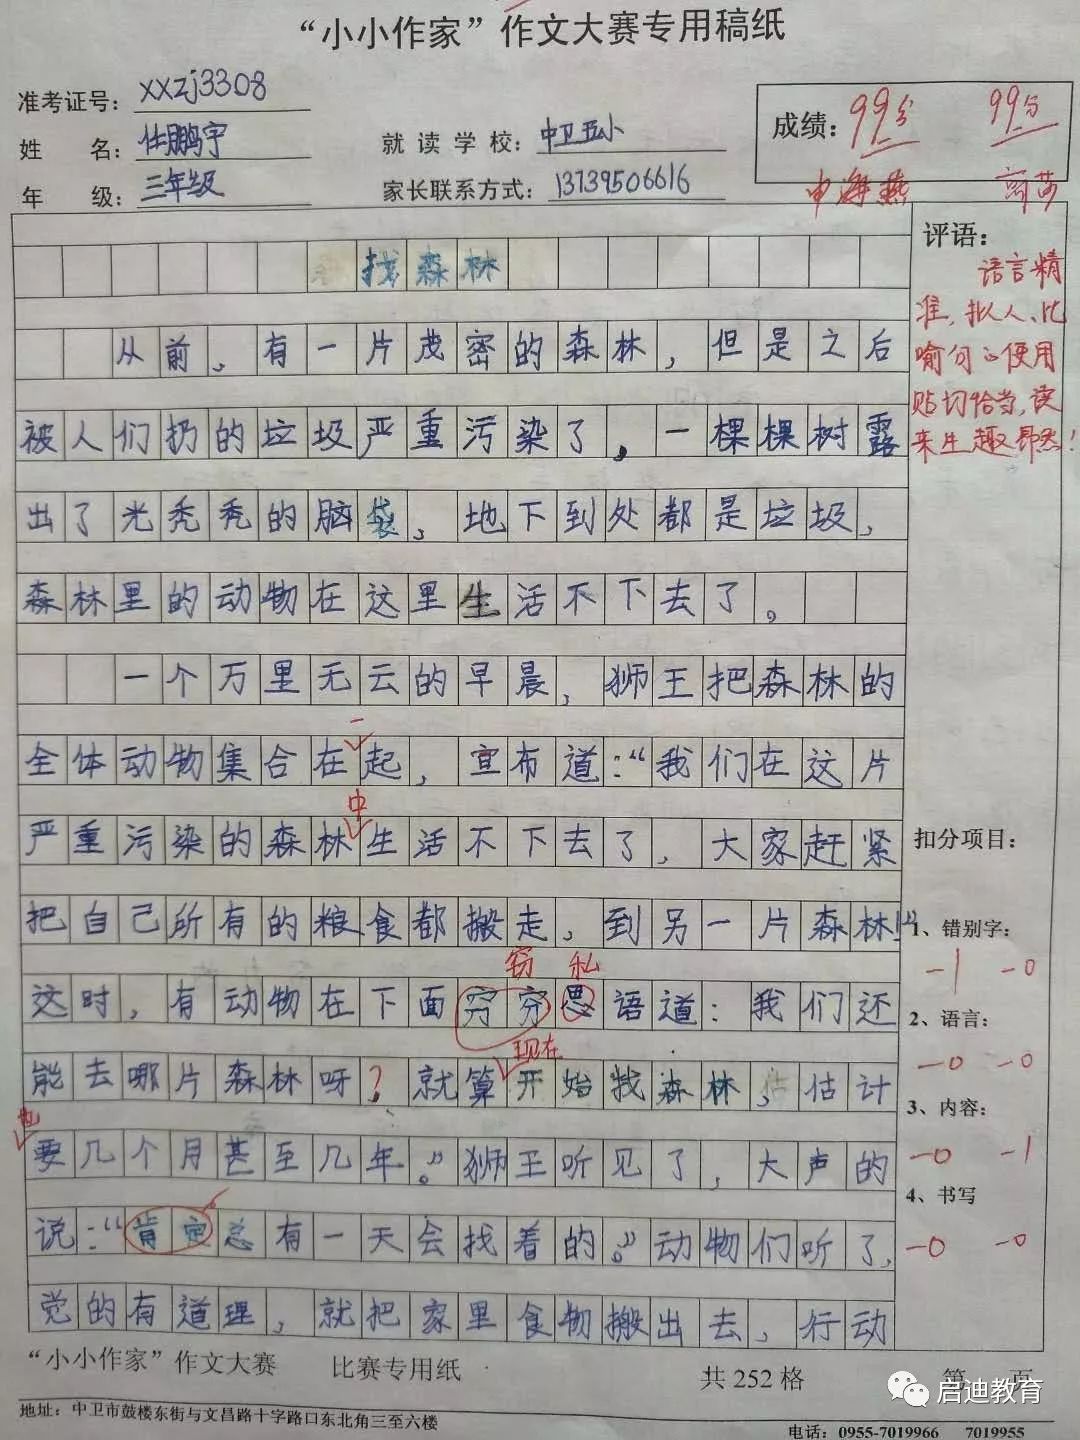 “小小作家”作文大赛专用稿纸
准考证号：xxzj3308
姓 名：任鹏宇
就读学校：中卫五小
年 级：三年级
家长联系方式：13739506616
成绩：99分 99分
申海燕
找森林
从前，有一片茂密的森林，但是之后
被人们扔的垃圾严重污染了，一棵棵树露
出了光秃秃的脑袋，地下到处都是垃圾，
森林里的动物在这里生活不下去了。
一个万里无云的早晨，狮王把森林的
一
全体动物集合在起，宣布道：“我们在这片
中
严重污染的森林生活不下去了，大家赶紧
把自己所有的粮食都搬走，到另一片森林！”
窃 私
这时，有动物在下面穷穷思语道：我们还
现在
能去哪片森林呀？就算开始找森林，估计
也
要几个月甚至几年。”狮王听见了，大声的
说：“肯定总有一天会找着的。”动物们听了，
觉的有道理，就把家里食物搬出去，行动
评语：
语言精
准，拟人、比
喻句的使用
贴切恰当，读
来生趣昂然！
扣分项目：
1、错别字：
-1 -0
2、语言：
-0 -0
3、内容：
-0 -1
4、书写
-0 -0
“小小作家”作文大赛 比赛专用纸 共 252 格 第 页
启迪教育
地址：中卫市鼓楼东街与文昌路十字路口东北角三至六楼
电话：0955-7019966 7019955